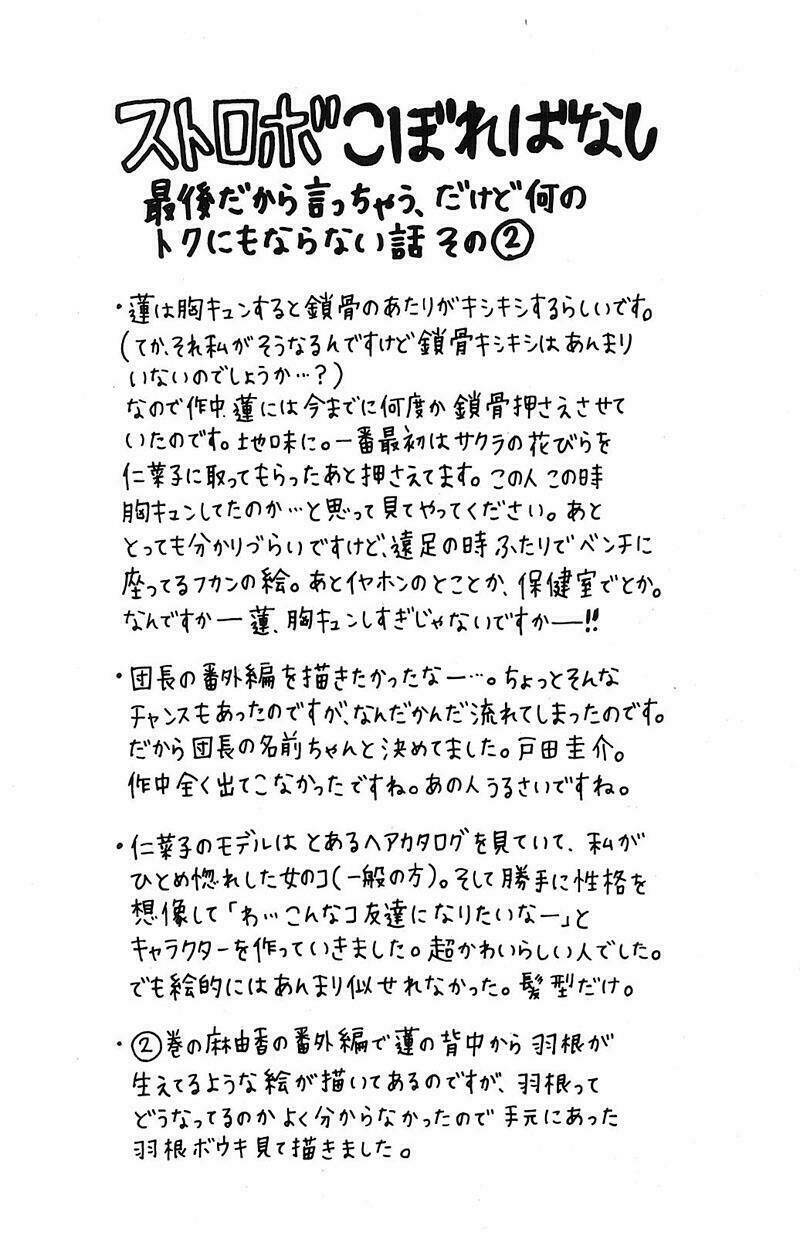 ストロボこぼればなし
最後だから言っちゃう、だけど何の
トクにもならない話 その②
・蓮は胸キュンすると鎖骨のあたりがキシキシするらしいです。
(てか、それ私がそうなるんですけど鎖骨キシキシはあんまり
いないのでしょうか…?)
なので作中、蓮には今までに何度か鎖骨押さえさせて
いたのです。地味に。一番最初はサクラの花びらを
仁菜子に取ってもらったあと押さえてます。この人この時
胸キュンしてたのか…と思って見てやってください。あと
とっても分かりづらいですけど、遠足の時ふたりでベンチに
座ってるフカンの絵。あとイヤホンのとことか、保健室でとか。
なんですかー蓮、胸キュンしすぎじゃないですかー!!
・団長の番外編を描きたかったなー…。ちょっとそんな
チャンスもあったのですが、なんだかんだ流れてしまったのです。
だから団長の名前ちゃんと決めてました。戸田圭介。
作中全く出てこなかったですね。あの人うるさいですね。
・仁菜子のモデルはとあるヘアカタログを見ていて、私が
ひとめ惚れした女のコ(一般の方)。そして勝手に性格を
想像して「わ…こんなコ友達になりたいなー」と
キャラクターを作っていきました。超かわいらしい人でした。
でも絵的にはあんまり似せれなかった。髪型だけ。
・②巻の麻由香の番外編で蓮の背中から羽根が
生えてるような絵が描いてあるのですが、羽根って
どうなってるのかよく分からなかったので手元にあった
羽根ボウキ見て描きました。